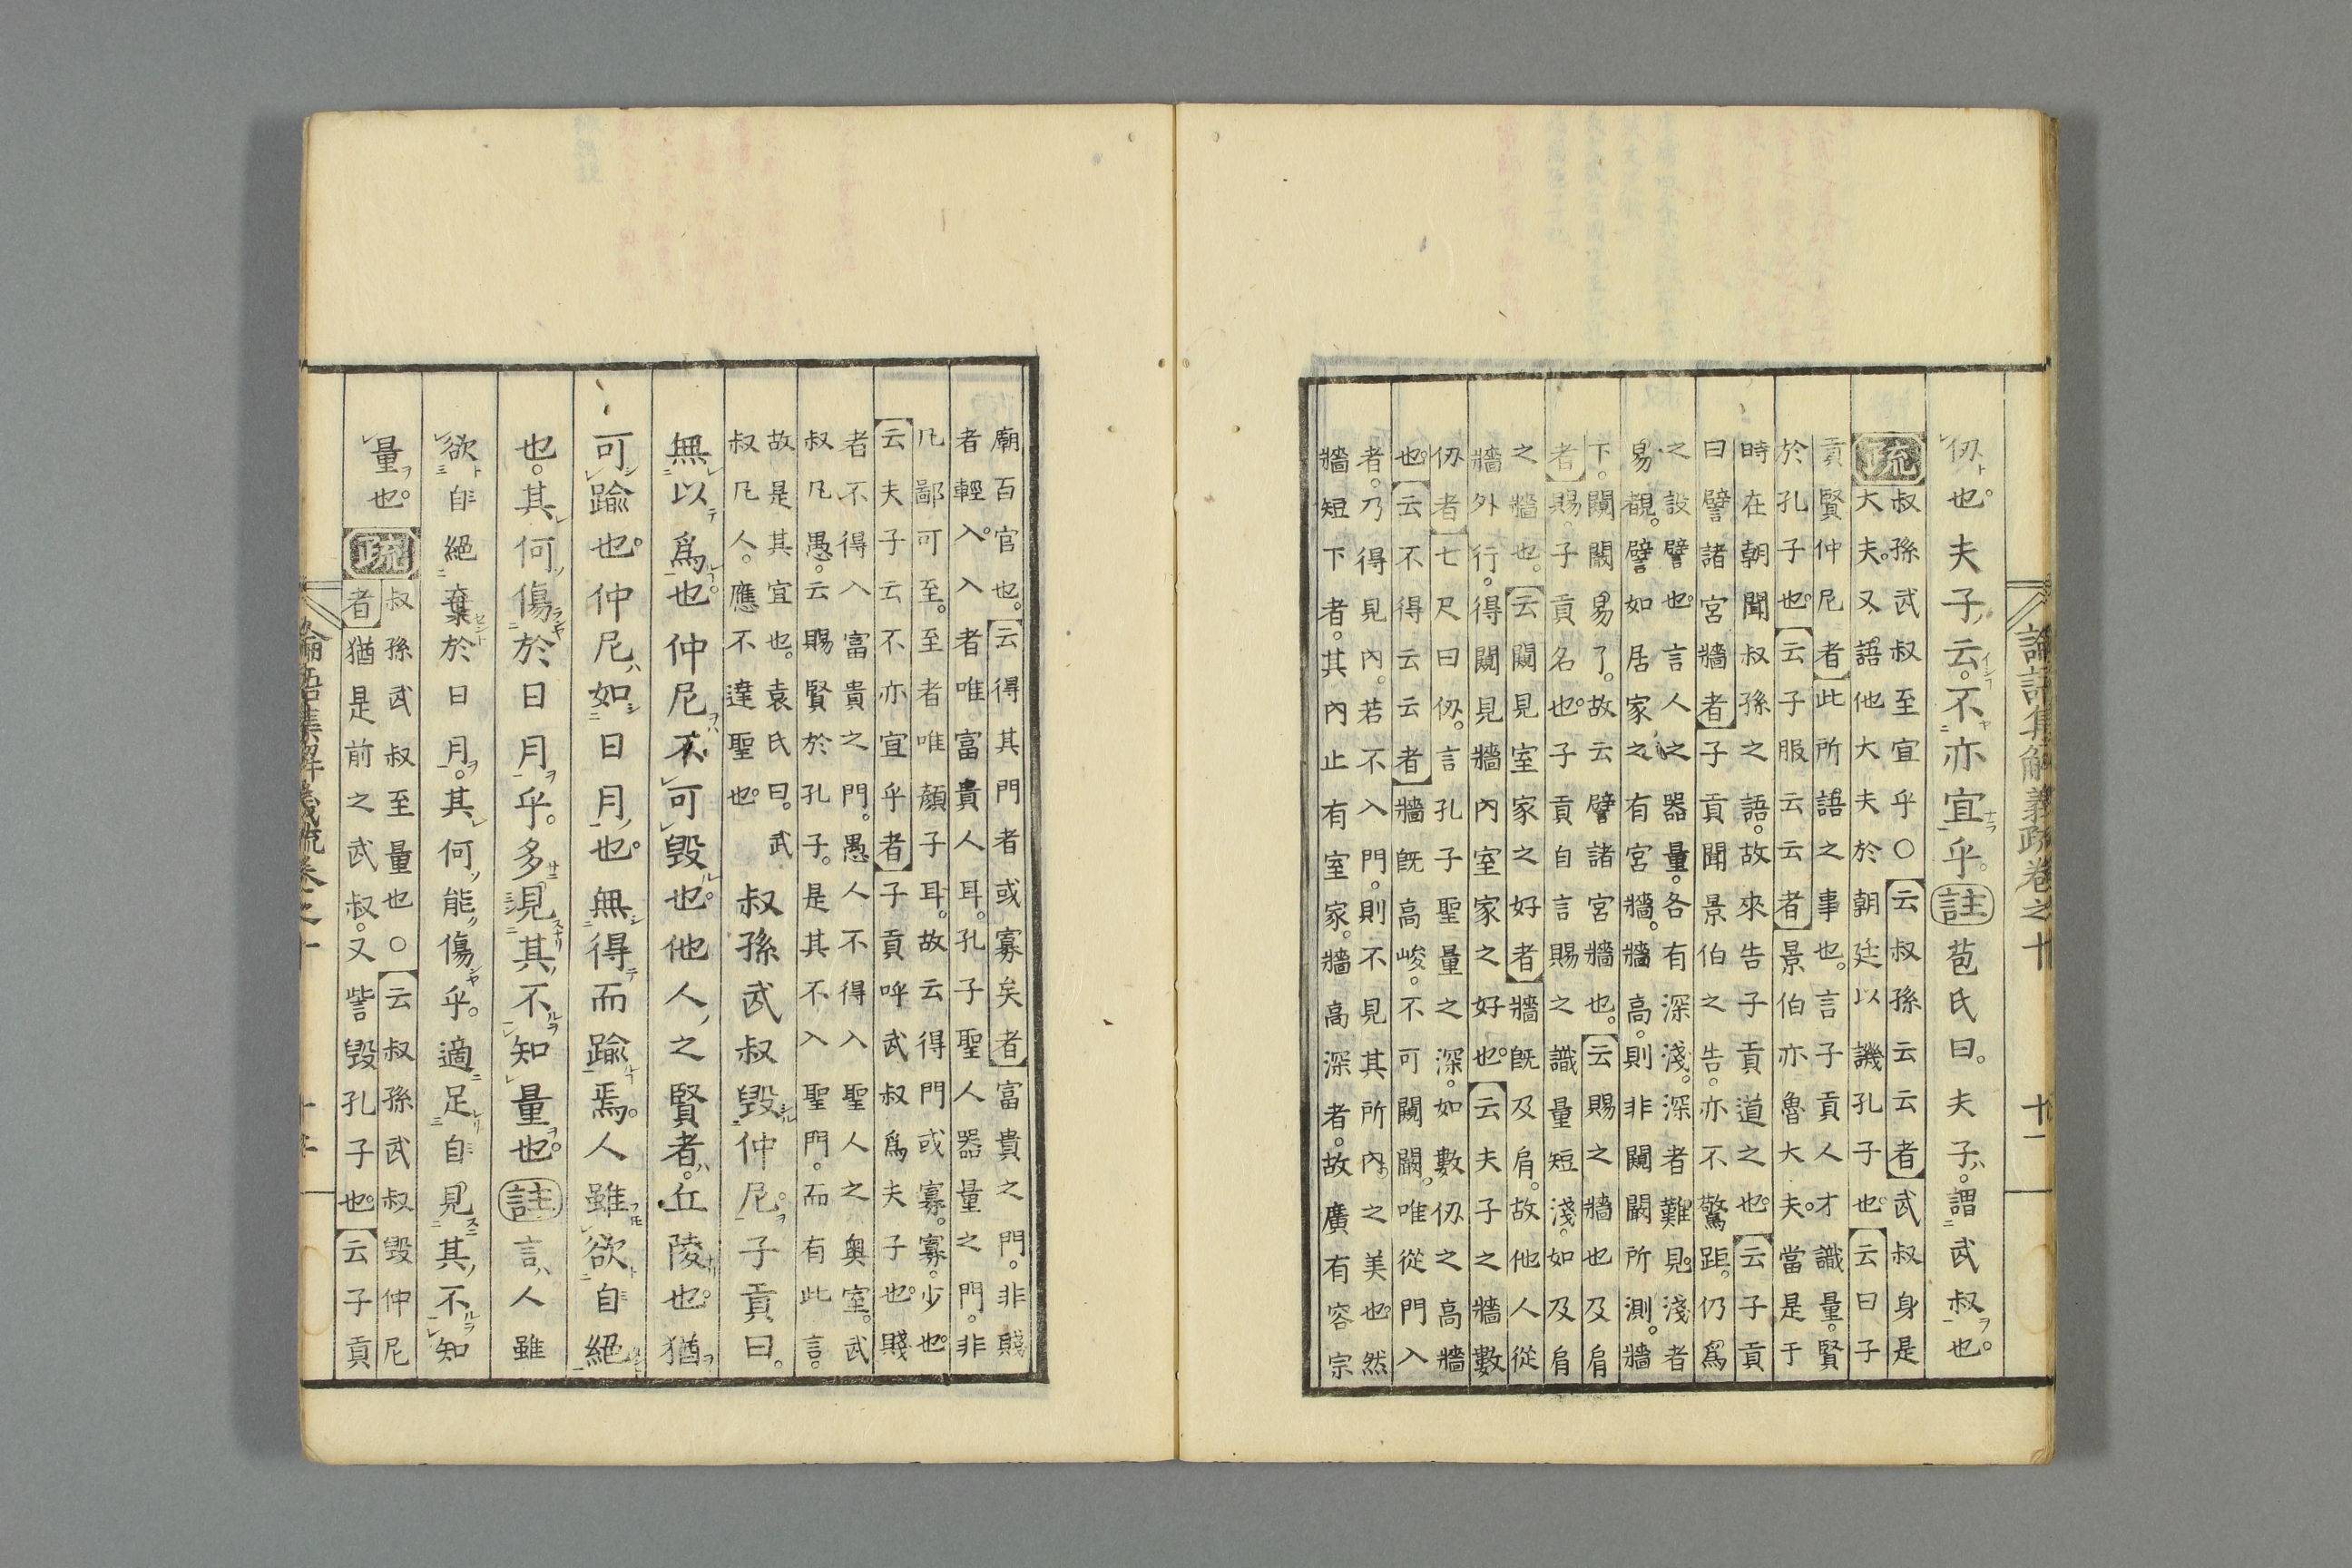 論語集解義疏卷之十 十一
仭也。夫子云。不亦宜乎。註苞氏曰。夫子。謂武叔也。
疏叔孫武叔至宜乎○【云叔孫云云者】武叔身是
大夫。又語他大夫於朝廷以譏孔子也。【云曰子
貢賢仲尼者】此所語之事也。言子貢人才識量。賢
於孔子也。【云子服云云者】景伯亦魯大夫。當是于
時在朝聞叔孫之語。故來告子貢道之也。【云子貢
曰譬諸宮牆者】子貢聞景伯之告。亦不驚距。仍爲
之設譬也。言人之器量。各有深淺。深者難見。淺者
易覩。譬如居家之有宮牆。牆高。則非闚闞所測。牆
下。闚闞易了。故云譬諸宮牆也。【云賜之牆也及肩
者】賜。子貢名也。子貢自言賜之識量短淺。如及肩
之牆也。【云闚見室家之好者】牆旣及肩。故他人從
牆外行。得闚見牆內室家之好也。【云夫子之牆數
仭者】七尺曰仭。言孔子聖量之深。如數仭之高牆
也。【云不得云云者】牆旣高峻。不可闚闞。唯從門入
者。乃得見內。若不入門。則不見其所內。之美也。然
牆短下者。其內止有室家。牆高深者。故廣有容宗
廟百官也。【云得其門者或寡矣者】富貴之門。非賤
者輕入。入者唯富貴人耳。孔子聖人器量之門。非
凡鄙可至。至者唯顏子耳。故云得門或寡。寡。少也。
【云夫子云不亦宜乎者】子貢呼武叔爲夫子也。賤
者不得入富貴之門。愚人不得入聖人之奧室。武
叔凡愚。云賜賢於孔子。是其不入聖門。而有此言。
故是其宜也。袁氏曰。武
叔凡人。應不達聖也。
叔孫武叔毀仲尼。子貢曰。
無以爲也。仲尼不可毀也。他人之賢者。丘陵也。猶
可踰也。仲尼如日月也。無得而踰焉。人雖欲自絕
也。其何傷於日月乎。多見其不知量也。註言人雖
欲自絕棄於日月。其何能傷乎。適足自見其不知
量也。疏叔孫武叔至量也○【云叔孫武叔毀仲尼
者】猶是前之武叔。又訾毀孔子也。【云子貢
論語集解義疏卷之十